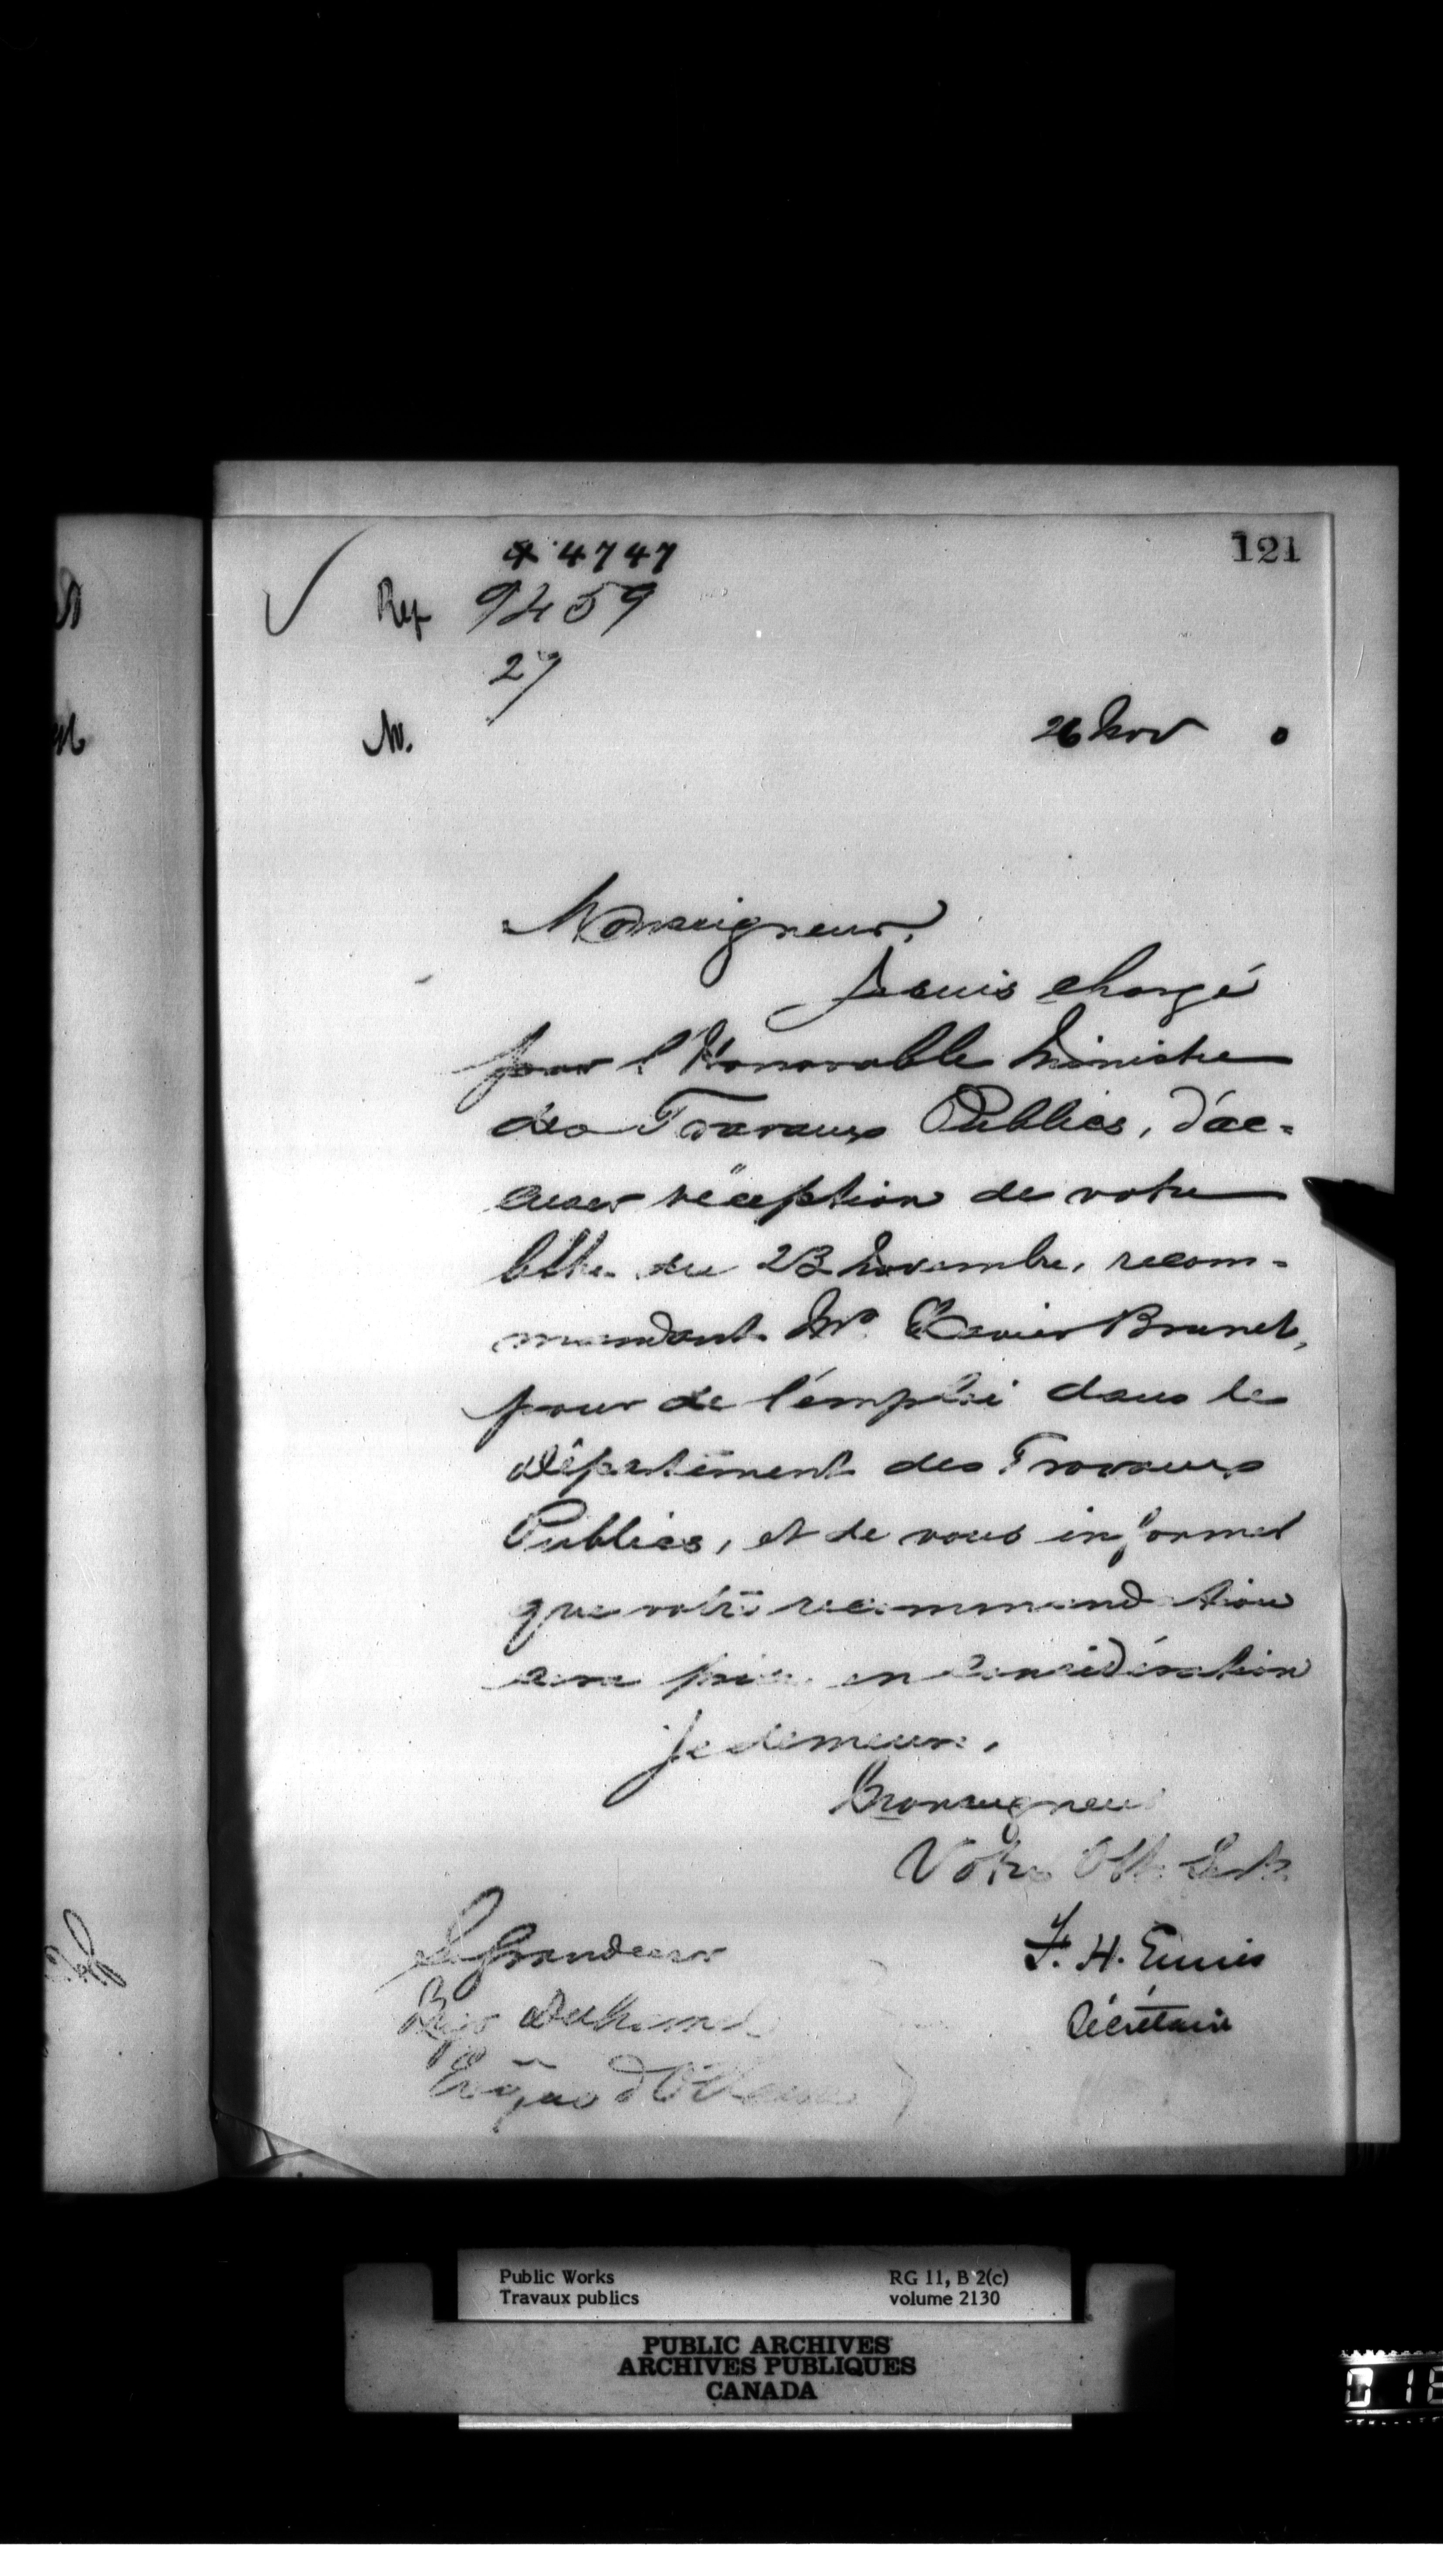 121
* 4747
Ref 9459
27
N.
26 Nov 0
Monseigneur,
Je suis chargé
par l'Honorable Ministre
des Travaux Publics, d'ac-
cuser réception de votre
lettre du 23 Novembre, recom-
mandant Mr. Xavier Brunet,
pour de l'emploi dans le
Département des Travaux
Publics, et de vous informer
que votre recommandation
sera prise en considération
Je demeure,
Monseigneur
Votre Obt. Servt.
F. H. Ennis
Sécrétaire
Sa Grandeur
Mgr Duhamel
Evêque d'Ottawa
Public Works
Travaux publics
RG 11, B 2(c)
volume 2130
PUBLIC ARCHIVES
ARCHIVES PUBLIQUES
CANADA